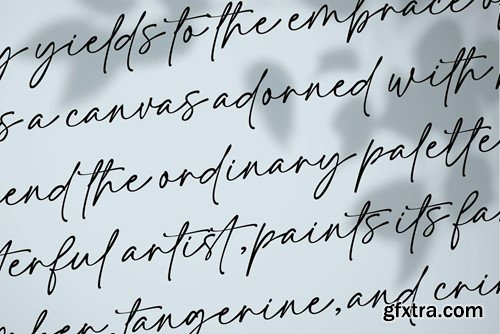 yields to the embrace
s a canvas adorned with
end the ordinary palette
terful artist, paints its fa
tangerine, and crim
gfxtra.com